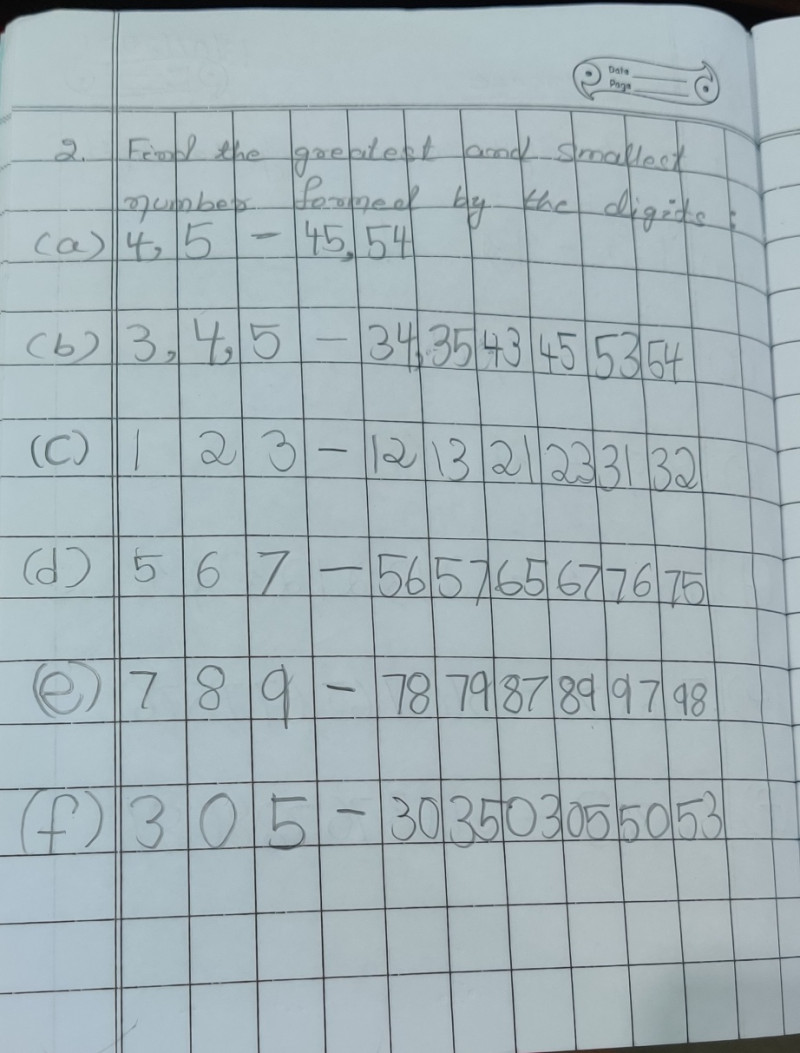 Date
Page
2. Find the greatest and smallest
number formed by the digits:
(a) 4, 5 - 45, 54
(b) 3, 4, 5 - 34, 35 43 45 53 54
(c) 1 2 3 - 12 13 21 23 31 32
(d) 5 6 7 - 56 57 65 67 76 75
(e) 7 8 9 - 78 79 87 89 97 98
(f) 3 0 5 - 30 35 03 05 50 53